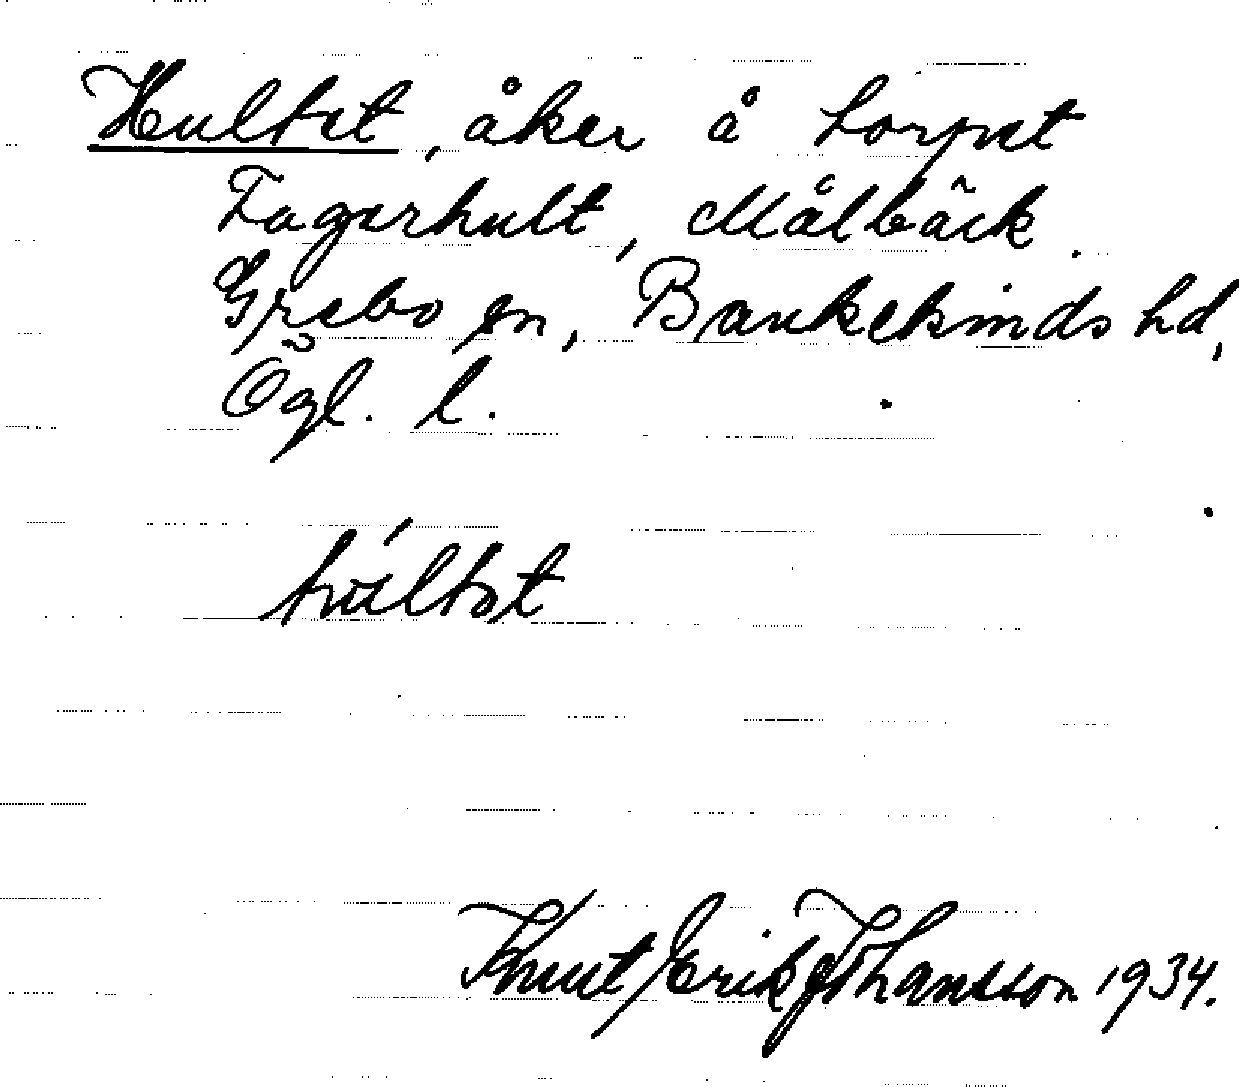 Hultet, åker å torpet
Fagerhult, Målbäck.
Grebo sn, Bankekinds hd,
Ögl. l.
Knut Erik Johansson 1934.